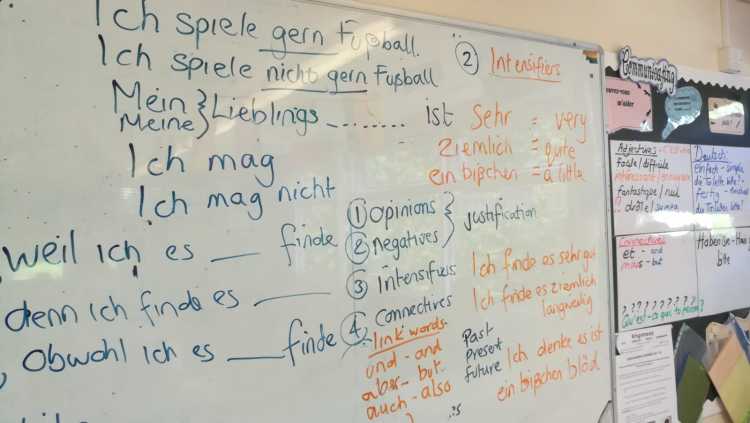 Ich spiele gern Fußball.
Ich spiele nicht gern Fußball
Mein } Lieblings ........ ist
Meine
Ich mag
Ich mag nicht
weil ich es ___ finde
denn ich finde es ___
, obwohl ich es ___ finde
② Intensifiers
Sehr = very
ziemlich = quite
ein bißchen = a little
① Opinions } Justification
② Negatives
③ Intensifiers
④ Connectives
link words
und - and
aber - but
auch - also
Past
Present
future
Ich finde es sehr gut
Ich finde es ziemlich
langweilig
Ich denke es ist
ein bißchen blöd
Communicating
Adjectives - C'est
Facile / difficile
fantastique / nul
drôle /
Connectives
et - and
mais - but
? ? ? ? ? ? ? ? ?
Deutsch:
einfach -
die Toilette bitte?
fertig -
Haben Sie
bitte